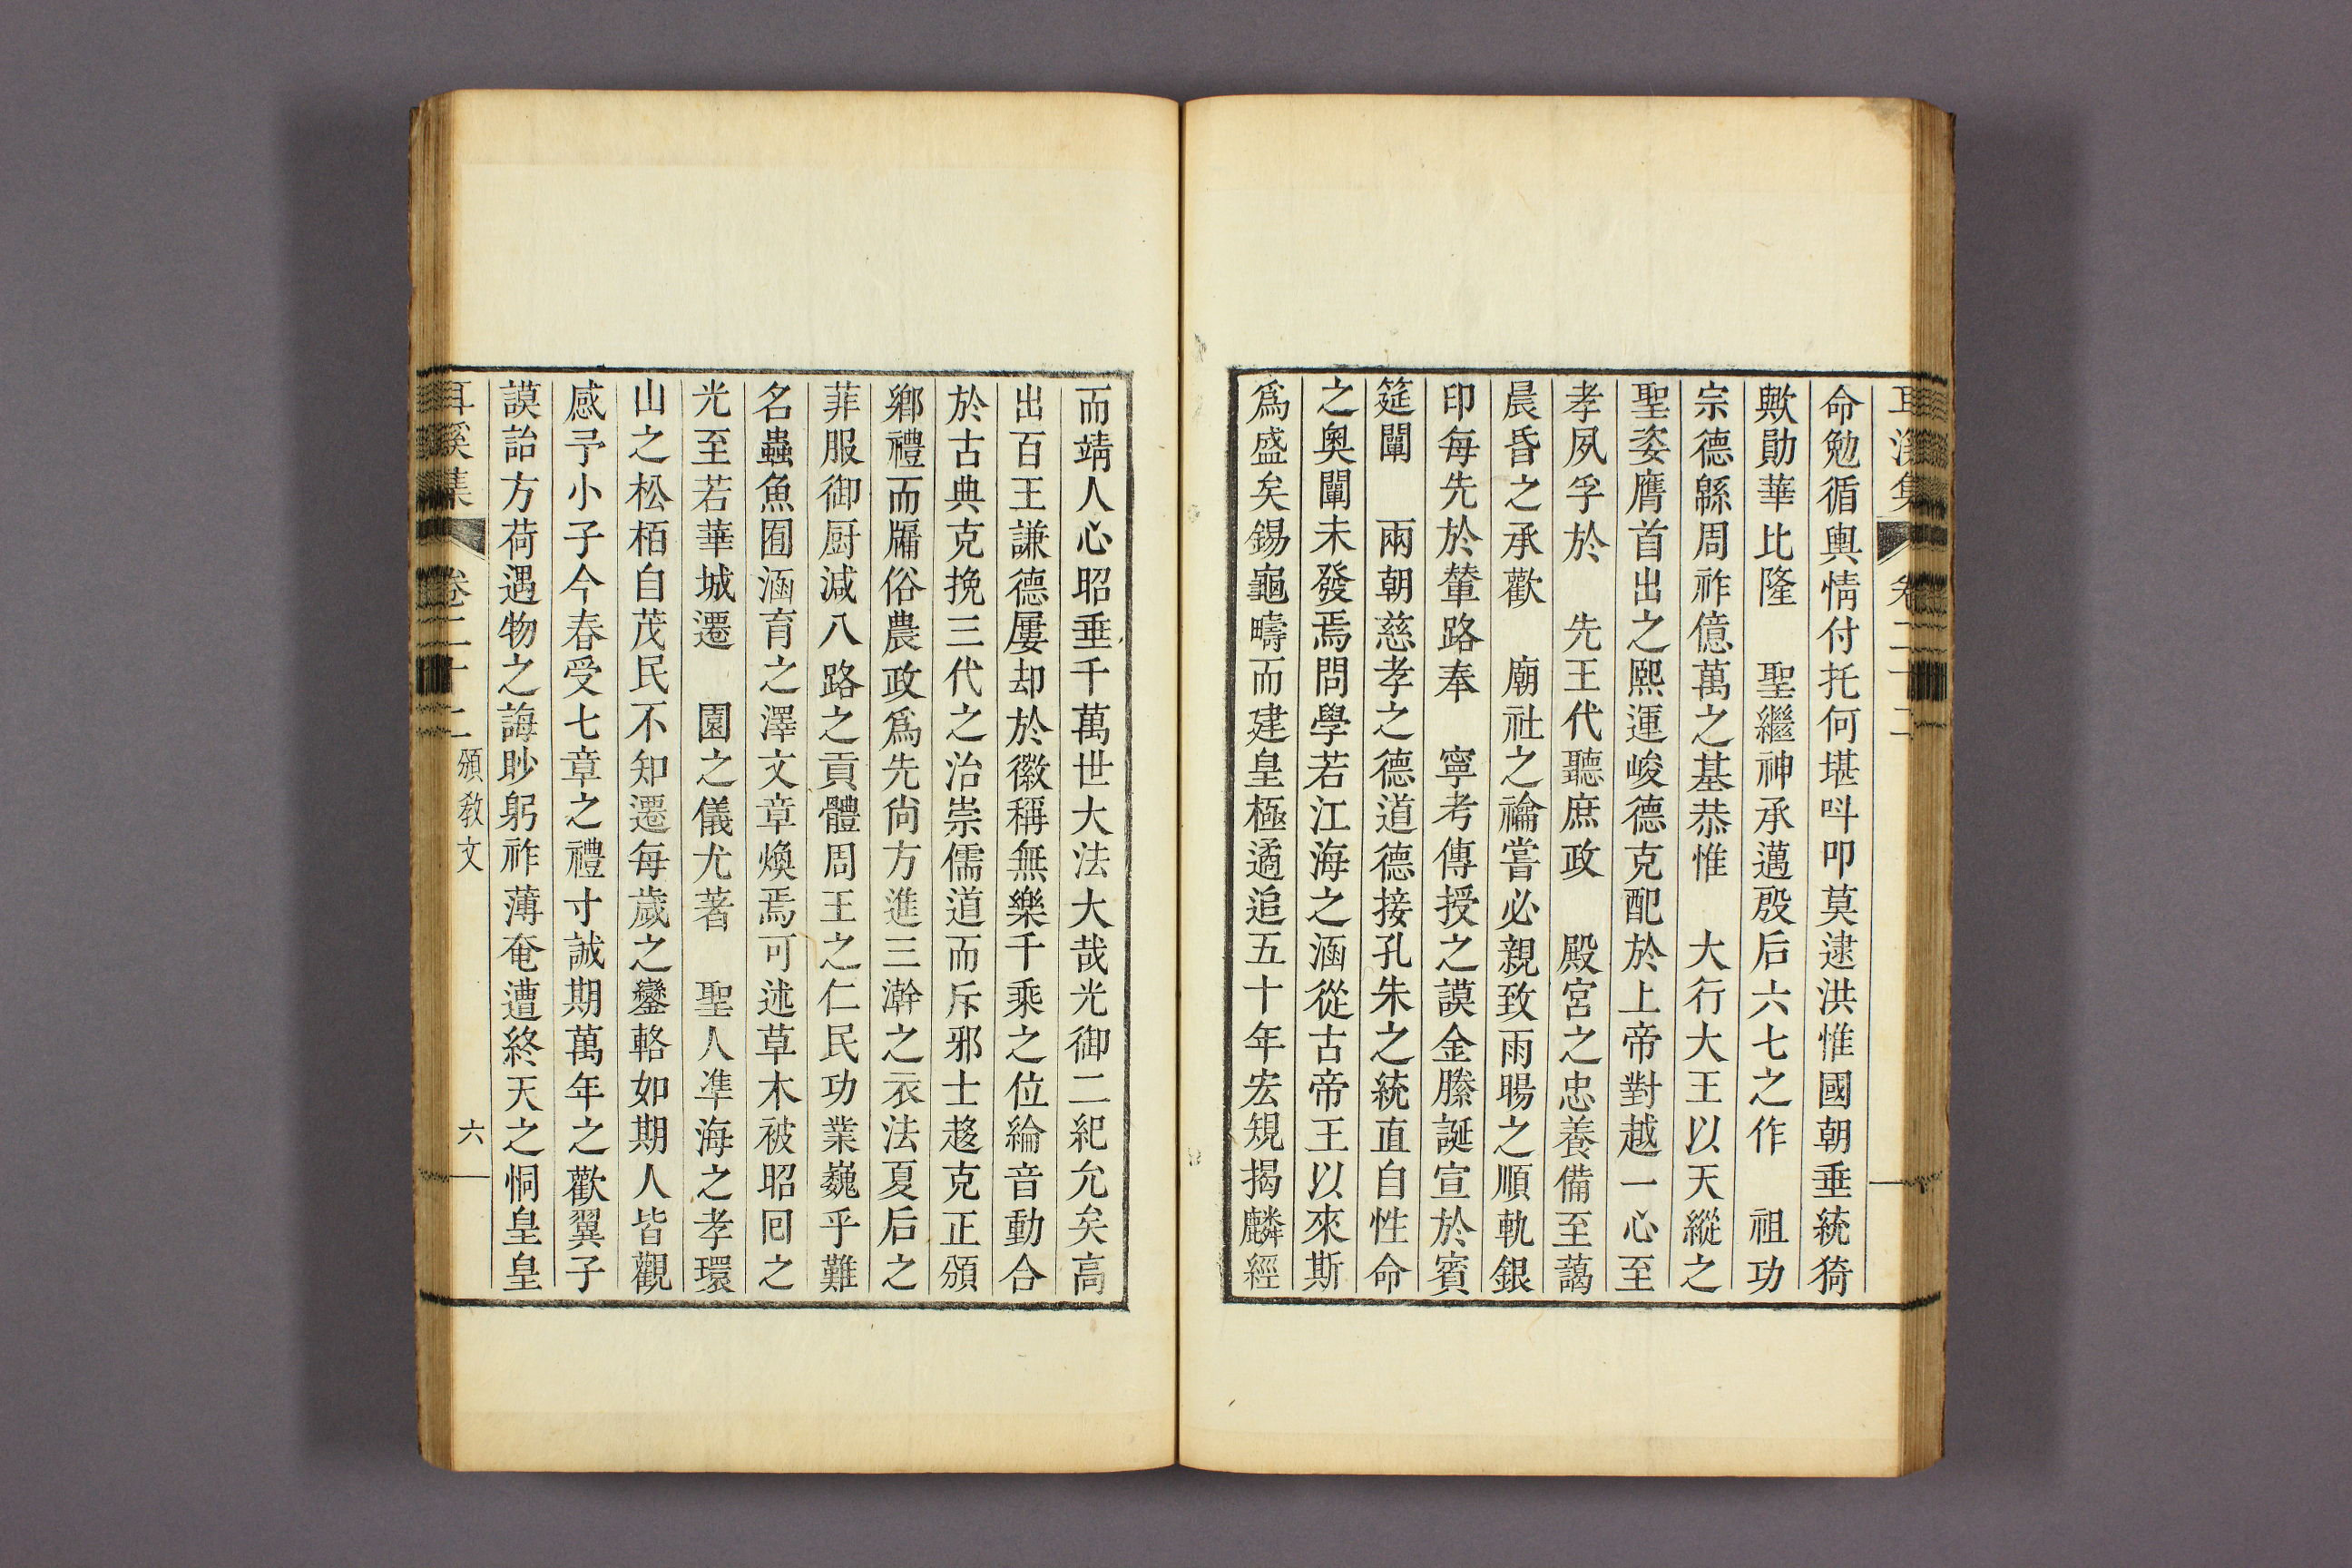 耳溪集 卷二十二
命勉循輿情付托何堪呌叩莫逮洪惟國朝垂統猗
歟勛華比隆　聖繼神承邁殷后六七之作　祖功
宗德緜周祚億萬之基恭惟　大行大王以天縱之
聖姿膺首出之熙運峻德克配於上帝對越一心至
孝夙孚於　先王代聽庶政　殿宮之忠養備至藹
晨昏之承歡　廟社之禴嘗必親致雨暘之順軌銀
印每先於輦路奉　寧考傳授之謨金縢誕宣於賓
筵闡　兩朝慈孝之德道德接孔朱之統直自性命
之奧闡未發焉問學若江海之涵從古帝王以來斯
爲盛矣錫龜疇而建皇極遹追五十年宏規揭麟經
而靖人心昭垂千萬世大法大哉光御二紀允矣高
出百王謙德屢却於徽稱無樂千乘之位綸音動合
於古典克挽三代之治崇儒道而斥邪士趍克正頒
鄉禮而牖俗農政爲先尙方進三澣之衣法夏后之
菲服御厨減八路之貢體周王之仁民功業巍乎難
名蟲魚囿涵育之澤文章煥焉可述草木被昭回之
光至若華城遷　園之儀尤著　聖人準海之孝環
山之松栢自茂民不知遷每歲之鑾輅如期人皆觀
感予小子今春受七章之禮寸誠期萬年之歡翼子
謨詒方荷遇物之誨眇躬祚薄奄遭終天之恫皇皇
耳溪集 卷二十二 頒敎文 六